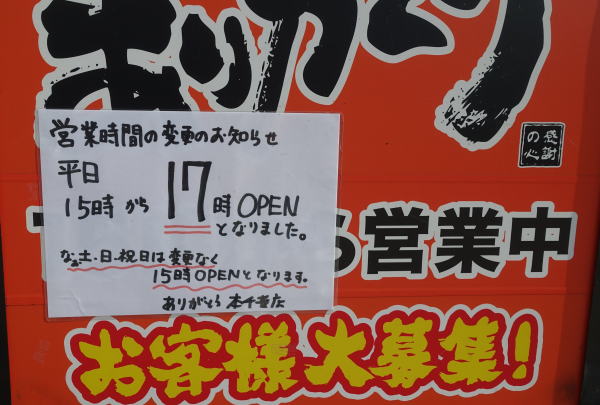 ありがとう
感謝
の心
営業時間の変更のお知らせ
平日
15時から17時OPEN
となりました。
なお土・日・祝日は変更なく
15時OPENとなります。
ありがとう 本千葉店
営業中
お客様大募集!